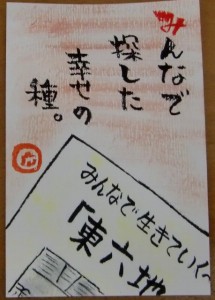 みんなで
探した
幸せの
種。
みんなで生きていく
「東六地